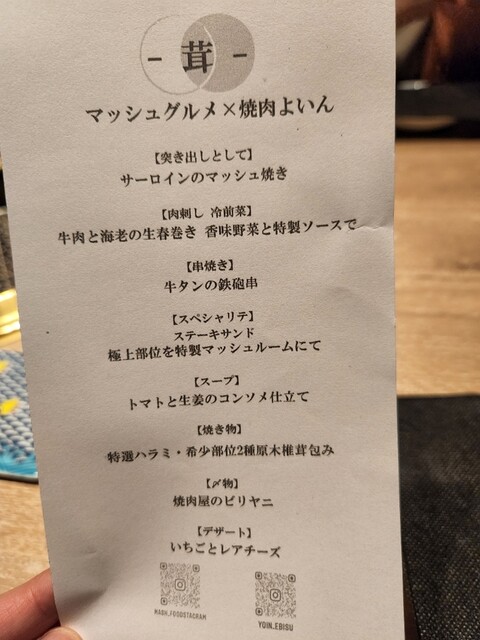 - 茸 -
マッシュグルメ×焼肉よいん
【突き出しとして】
サーロインのマッシュ焼き
【肉刺し 冷前菜】
牛肉と海老の生春巻き 香味野菜と特製ソースで
【串焼き】
牛タンの鉄砲串
【スペシャリテ】
ステーキサンド
極上部位を特製マッシュルームにて
【スープ】
トマトと生姜のコンソメ仕立て
【焼き物】
特選ハラミ・希少部位2種原木椎茸包み
【〆物】
焼肉屋のビリヤニ
【デザート】
いちごとレアチーズ
MASH_FOODSTAGRAM
YOIN.EBISU